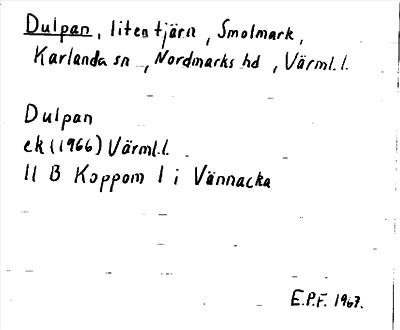 Dulpan, liten tjärn, Smolmark,
Karlanda sn, Nordmarks hd, Värml. l.
Dulpan
ek (1966) Värml. l.
11 B Koppom 1 i Vännacka
E.P.F. 1967.